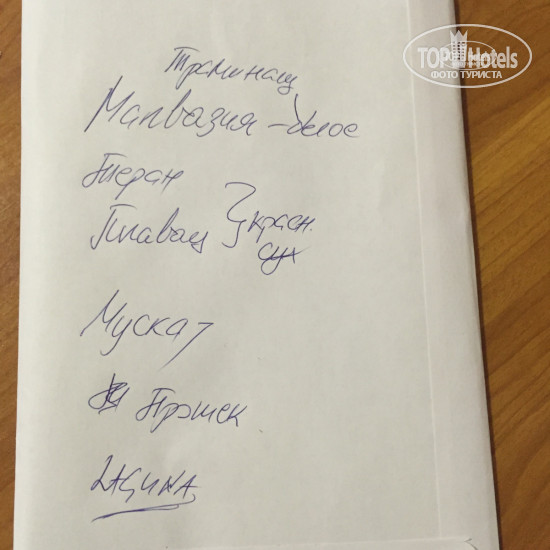 TOP Hotels
ФОТО ТУРИСТА
Траминац
Малвазия - белое
Теран
Плавац } красн.
сух
Мускат
Прошек
LAGUNA